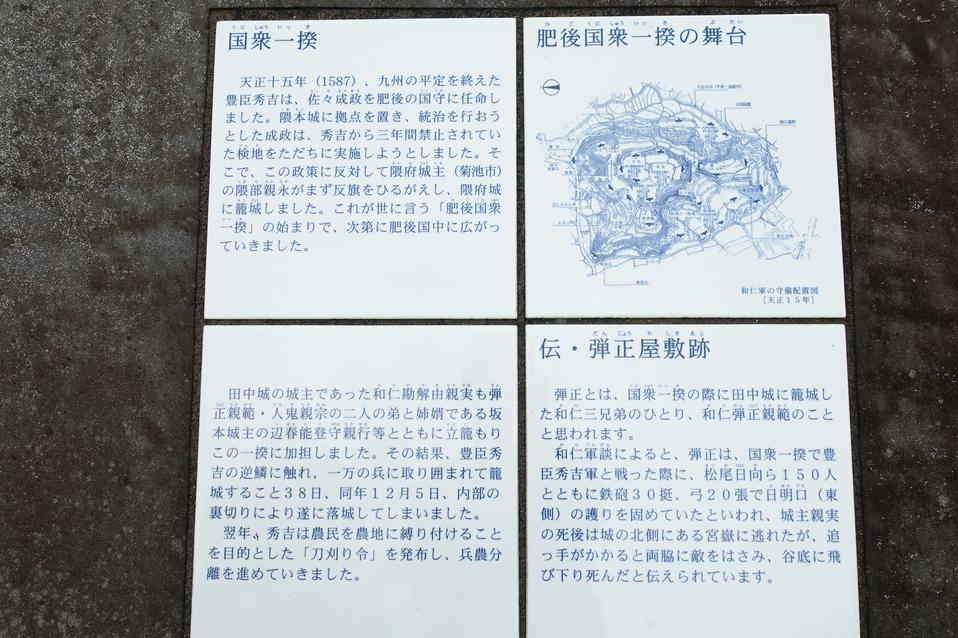 国衆一揆
天正十五年（1587）、九州の平定を終えた
豊臣秀吉は、佐々成政を肥後の国守に任命し
ました。隈本城に拠点を置き、統治を行おう
とした成政は、秀吉から三年間禁止されてい
た検地をただちに実施しようとしました。そ
こで、この政策に反対して隈府城主（菊池市）
の隈部親永がまず反旗をひるがえし、隈府城
に籠城しました。これが世に言う「肥後国衆
一揆」の始まりで、次第に肥後国中に広がっ
ていきました。
肥後国衆一揆の舞台
和仁軍の守備配置図
［天正１５年］
田中城の城主であった和仁勘解由親実も弾
正親範・人鬼親宗の二人の弟と姉婿である坂
本城主の辺春能登守親行等とともに立籠もり
この一揆に加担しました。その結果、豊臣秀
吉の逆鱗に触れ、一万の兵に取り囲まれて籠
城すること３８日、同年１２月５日、内部の
裏切りにより遂に落城してしまいました。
翌年、秀吉は農民を農地に縛り付けること
を目的とした「刀刈り令」を発布し、兵農分
離を進めていきました。
伝・弾正屋敷跡
弾正とは、国衆一揆の際に田中城に籠城し
た和仁三兄弟のひとり、和仁弾正親範のこと
と思われます。
和仁軍談によると、弾正は、国衆一揆で豊
臣秀吉軍と戦った際に、松尾日向ら１５０人
とともに鉄砲３０挺、弓２０張で日明口（東
側）の護りを固めていたといわれ、城主親実
の死後は城の北側にある宮嶽に逃れたが、追
っ手がかかると両脇に敵をはさみ、谷底に飛
び下り死んだと伝えられています。